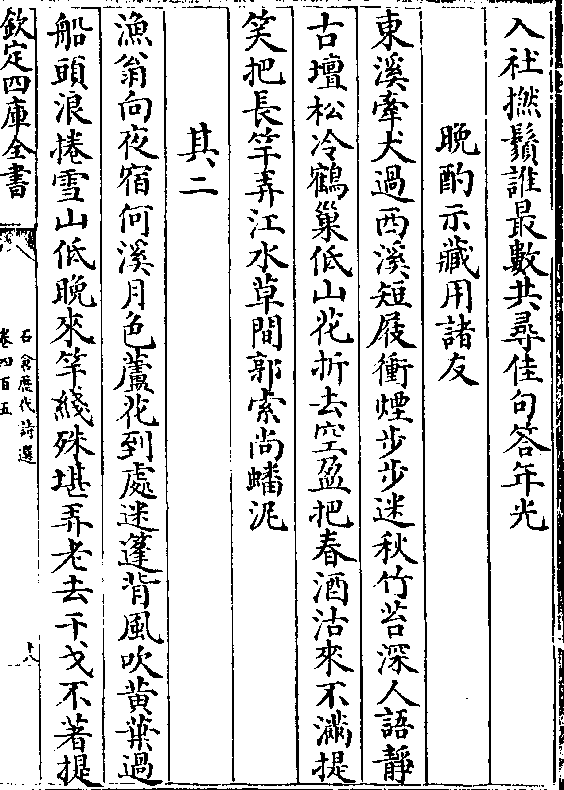 入社撚鬚誰最數共尋佳句答年光
晚酌示藏用諸友
東溪牽犬過西溪短屐衝煙步步迷秋竹苔深人語靜
古壇松冷鶴巢低山花折去空盈把春酒沽來不滿提
笑把長竿弄江水草間郭索尚蟠泥
其二
漁翁向夜宿何溪月色蘆花到處迷蓬背風吹黄葉過
船頭浪捲雪山低晚來竿綫殊堪弄老去干戈不著提
欽定四庫全書
石倉歷代詩選
卷四百五
十八